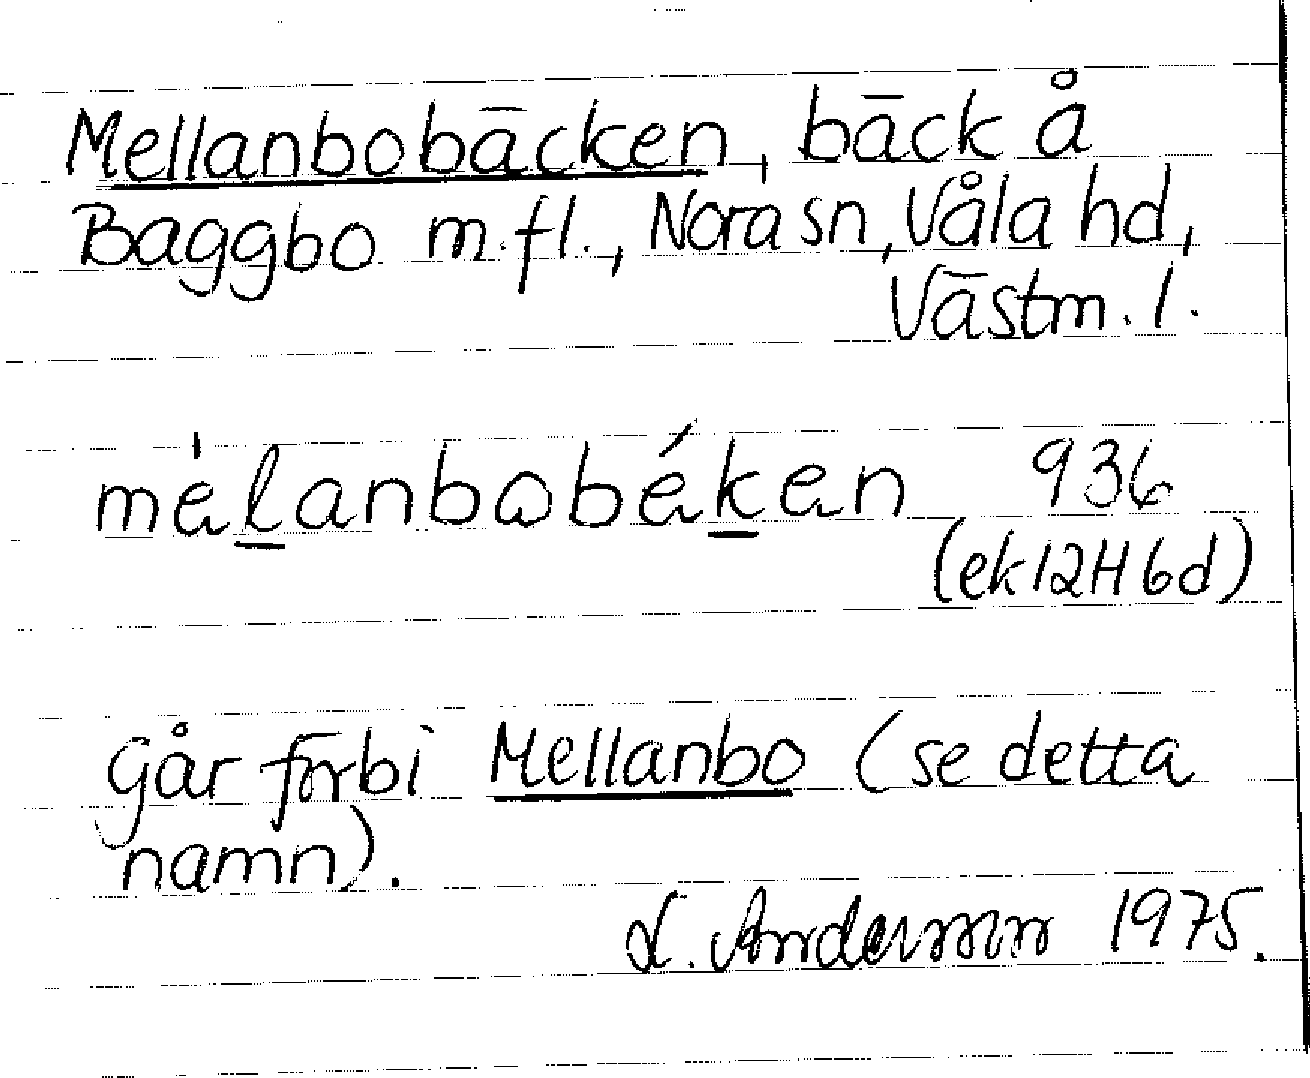 Mellanbobäcken, bäck å
Baggbo m.fl., Nora sn, Våla hd,
Västm. l.
mèlanbobéken 936
(ek 12H 6d)
Går förbi Mellanbo (se detta
namn).
L. Andersson 1975.